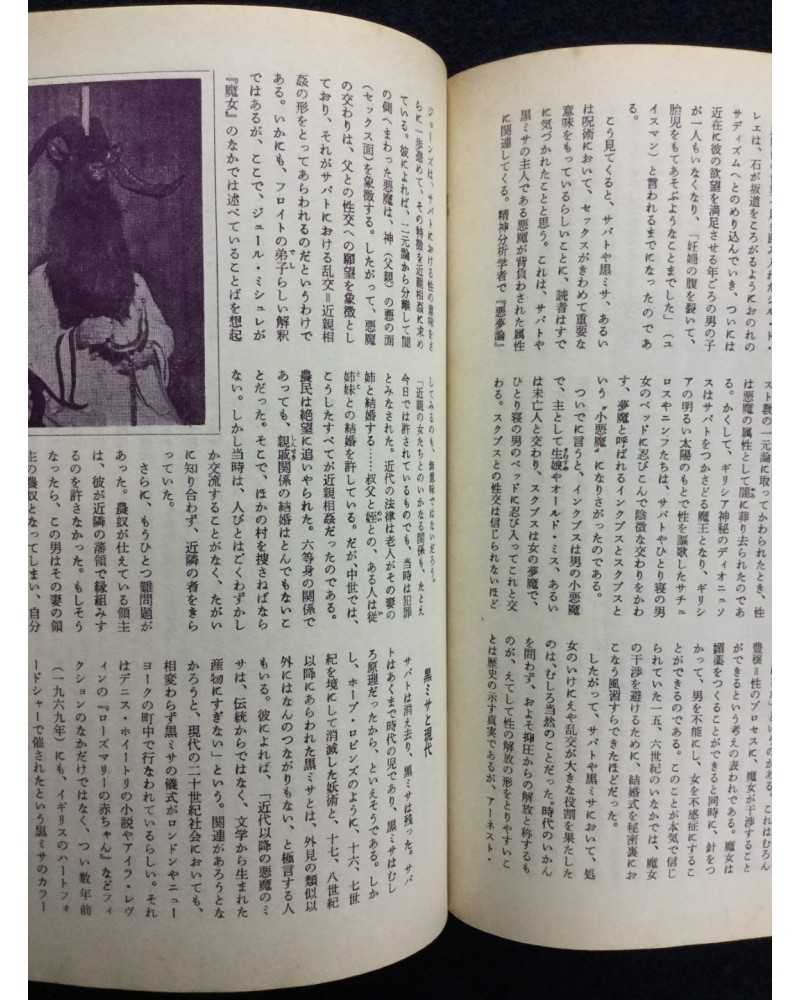 レエは、石が坂道をころがるようにおのれの
サディズムへとのめり込んでいき、ついには
近在に彼の欲望を満足させる年ごろの男の子
が一人もいなくなり、「妊婦の腹を裂いて、
胎児をもてあそぶようなことまでした」（ユ
イスマン）と言われるまでになったのであ
る。
こう見てくると、サバトや黒ミサ、あるい
は呪術において、セックスがきわめて重要な
意味をもっているらしいことに、読者はすで
に気づかれたことと思う。これは、サバトや
黒ミサの主人である悪魔が背負わされた属性
に関連してくる。精神分析学者で『悪夢論』
スト教の一元論に取ってかわられたとき、性
は悪魔の属性として闇に葬り去られたのであ
る。かくして、ギリシア神秘のディオニュソ
スはサバトをつかさどる魔王となり、ギリシ
アの明るい太陽のもとで性を謳歌したサチュ
ロスやニンフたちは、サバトやひとり寝の男
女のベッドに忍びこんで陰微な交わりをかわ
す、夢魔と呼ばれるインクブスとスクブスと
いう〝小悪魔〟になりさがったのである。
ついでに言うと、インクブスは男の小悪魔
で、主として生娘やオールド・ミス、あるい
は未亡人と交わり、スクブスは女の夢魔で、
ひとり寝の男のベッドに忍び入ってこれと交
わる。スクブスとの性交は信じられないほど
豊穣＝性のプロセスに、魔女が干渉すること
ができるという考えの表われである。魔女は
媚薬をつくることができると同時に、針をつ
かって、男を不能にし、女を不感症にするこ
とができるのである。このことが本気で信じ
られていた一五、六世紀のいなかでは、魔女
の干渉を避けるために、結婚式を秘密裏にお
こなう風習すらできたほどだった。
したがって、サバトや黒ミサにおいて、処
女のいけにえや乱交が大きな役割を果たした
のは、むしろ当然のことだった。時代のいかん
を問わず、およそ抑圧からの解放と称するも
のが、えてして性の解放の形をとりやすいこ
とは歴史の示す真実であるが、アーネスト・
ジョーンズは、サバトにおける性の意味をさ
らに一歩進めて、その特徴を近親相姦に求め
ている。彼によれば、二元論から分離して闇
の側へまわった悪魔は、神（父親）の悪の面
（セックス面）を象徴する。したがって、悪魔
の交わりは、父との性交への願望を象徴とし
ており、それがサバトにおける乱交＝近親相
姦の形をとってあらわれるのだというわけで
ある。いかにも、フロイトの弟子らしい解釈
ではあるが、ここで、ジュール・ミシュレが
『魔女』のなかでは述べていることばを想起
してみるのも、無意味ではないだろう。
「近親の女たちとのいかなる関係も、たとえ
今日では許されているものでも、当時は犯罪
とみなされた。近代の法律は老人がその妻の
姉と結婚する……叔父と姪との、ある人は従
姉妹との結婚を許している。だが、中世では、
こうしたすべてが近親相姦だったのである。
農民は絶望に追いやられた。六等身の関係で
あっても、親戚関係の結婚はとんでもないこ
とだった。そこで、ほかの村を捜さねばなら
ない。しかし当時は、人びとはごくわずかし
か交流することがなく、たがい
に知り合わず、近隣の者をきら
っていた。
さらに、もうひとつ難問題が
あった。農奴が仕えている領主
は、彼が近隣の藩領で縁組みす
るのを許さなかった。もしそう
なったら、この男はその妻の領
主の農奴となってしまい、自分
黒ミサと現代
サバトは消え去り、黒ミサは残った。サバ
トはあくまで時代の児であり、黒ミサはむし
ろ原理だったから、といえそうである。しか
し、ホープ・ロビンズのように、十六、七世
紀を境にして消滅した妖術と、十七、八世紀
以降にあらわれた黒ミサとは、外見の類似以
外にはなんのつながりもない、と極言する人
もいる。彼によれば、「近代以降の悪魔のミ
サは、伝統からではなく、文学から生まれた
産物にすぎない」という。関連があろうとな
かろうと、現代の二十世紀社会においても、
相変わらず黒ミサの儀式がロンドンやニュー
ヨークの町中で行なわれているらしい。それ
はデニス・ホイートリの小説やアイラ・レヴ
ィンの『ローズマリーの赤ちゃん』などフィ
クションのなかだけではなく、つい数年前
（一九六九年）にも、イギリスのハートフォ
ードシャーで催されたという黒ミサのカラー